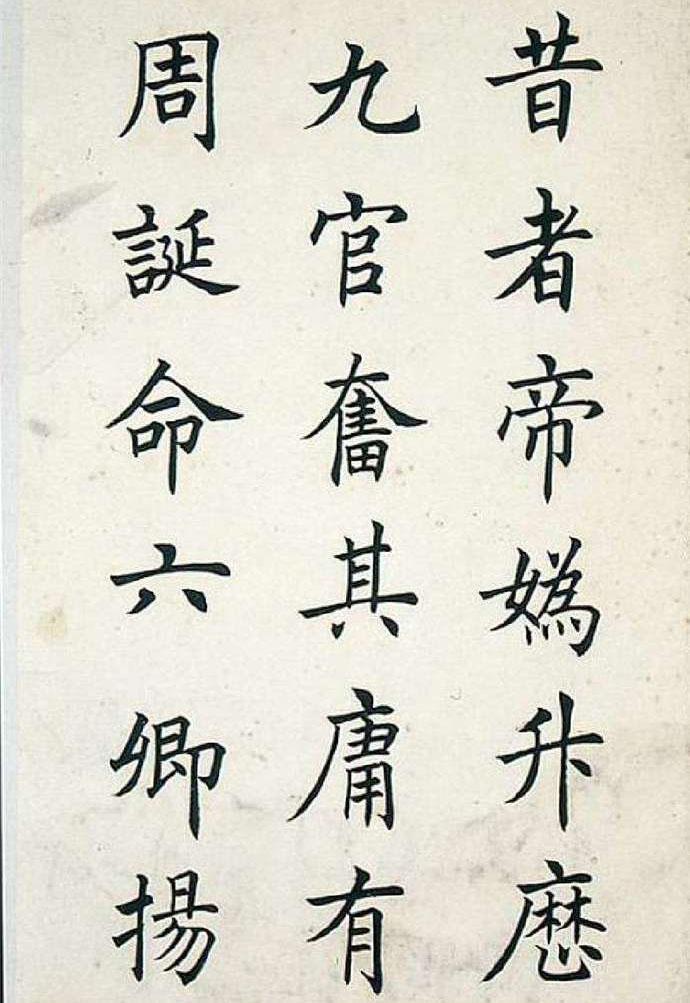 昔者帝媯升歴
九官奮其庸有
周誕命六卿揚